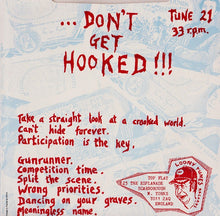 ...DON'T
GET
HOOKED!!!
TUNE 21
33 r.p.m.
Take a straight look at a crooked world.
Can't hide forever.
Participation is the key.
Gunrunner.
Competition time.
Split the scene.
Wrong priorities.
Dancing on your graves.
Meaningless name.
LOONEY TUNES
TOP FLAT
25 THE ESPLANADE
SCARBOROUGH
N. YORKS
YO11 2AQ
ENGLAND